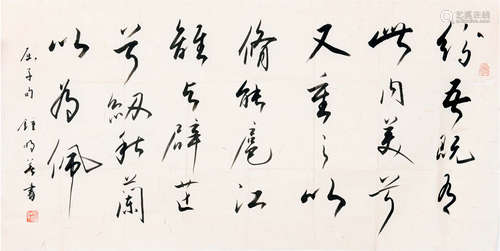 紛吾既有
此內美兮
又重之以
脩能扈江
離与辟芷
兮紉秋蘭
以為佩
屈子句 鍾明善書